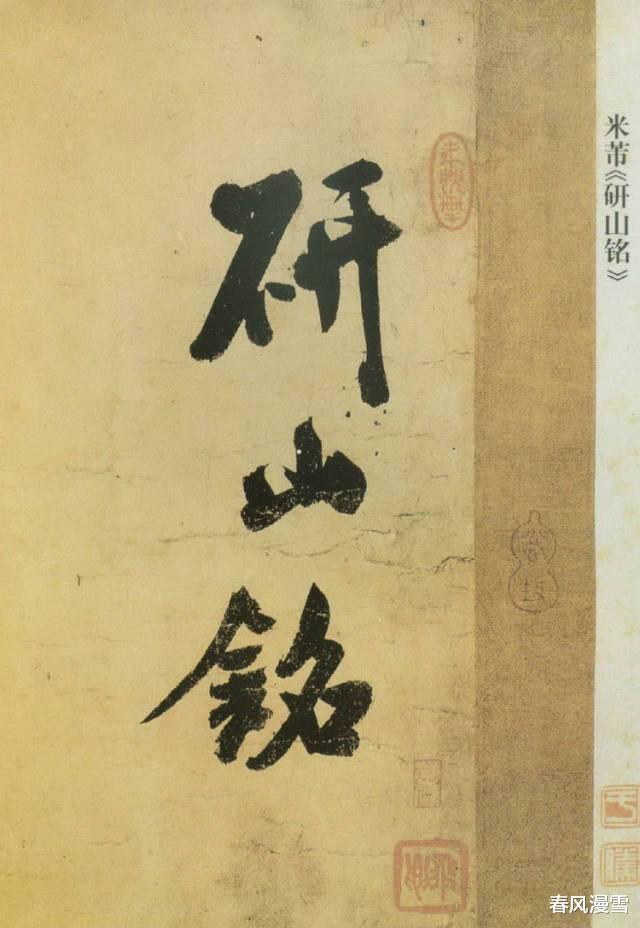 米芾《研山铭》
研山銘
春风漫雪